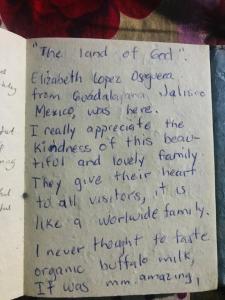 "The land of God".
Elizabeth Lopez Oseguera
from Guadalajara Jalisco
Mexico, was here.
I really appreciate the
kindness of this beau-
tiful and lovely family.
They give their heart
to all visitors, it is
like a worlwide family.
I never thought to taste
organic buffalo milk,
It was mm amazing,